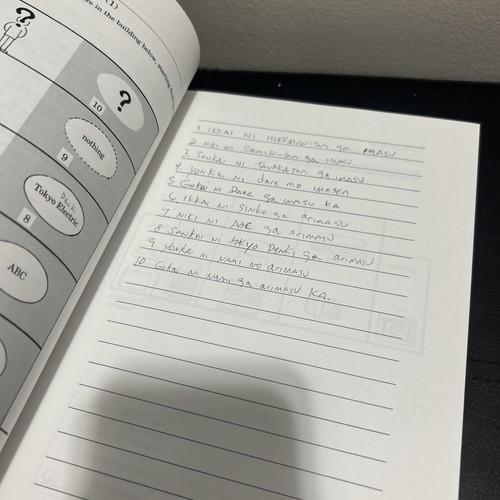 (1)
re in the building below, starting from
?
10
?
nothing
9
Denki
Tokyo Electric
8
ABC
1 IKKAI NI HOFFMAN-san ga IMASU
2 NIKAI NI SUMISU-san ga IMASU
3 SANKAI NI TANAKA-san ga imasu
4 YONKAI NI dare mo imasen
5 GOKAI NI DARE ga imasu KA
6 IKKAI NI ginko ga arimasu
7 NIKI NI ABC ga arimasu
8 SANKAI NI tokyo Denki ga arimasu
9 yonkai ni NANI mo arimasu
10 Gokai ni Nani ga arimasu KA.